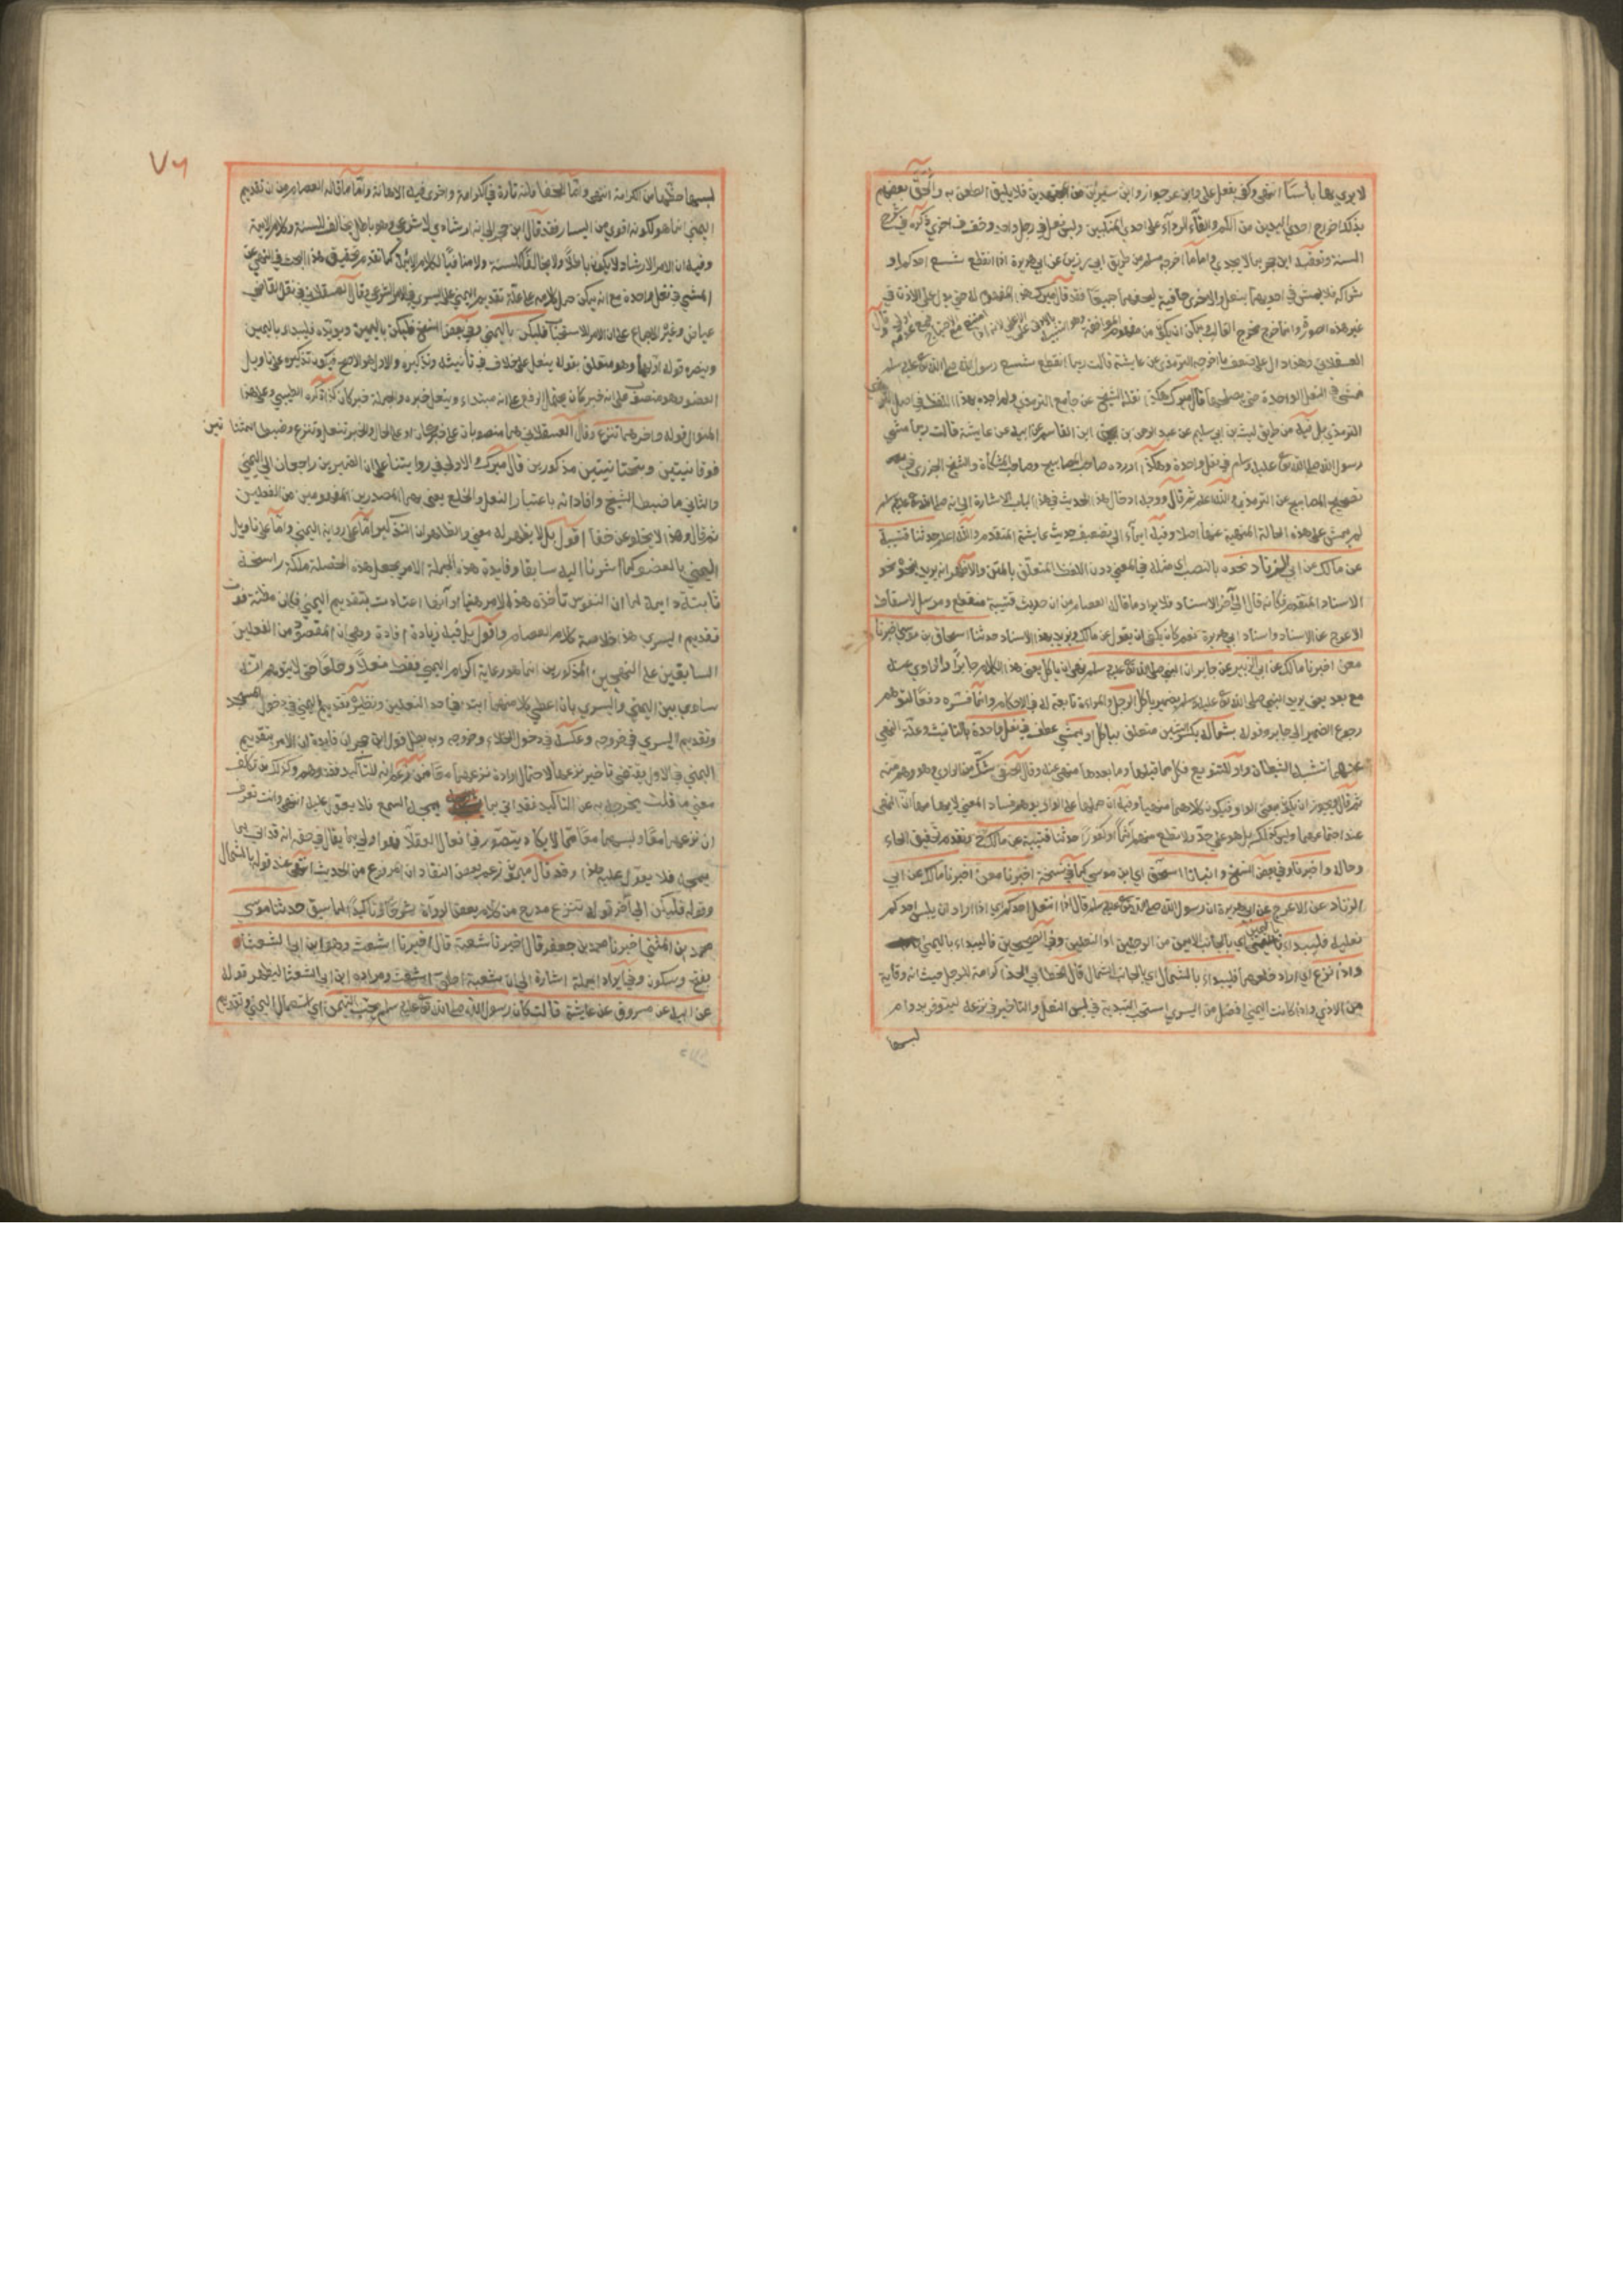 لا يرى بها بأسا انتهى وكفى بفعل علي وابن عمر جوازا وابن سيرين من المجتهدين فلا يليق الطعن به وألحق بعضهم
بذلك اخراج احدى اليدين من الكم والقاء الرداء على احدى المنكبين ولبس نعل في رجل واحد وخف في اخرى ذكره في شرح
السنة وتعقبه ابن حجر بما لا يجدي واما ما اخرجه مسلم من طريق ابي رزين عن ابي هريرة اذا انقطع شسع احدكم او
شراكه فلا يمش في احديهما بنعل والاخرى حافية ليحفهما جميعا فقد قال ميرك هذا المفهوم له حتى يدل على الاذن في
غير هذه الصورة وانما خرج مخرج الغالب ويمكن ان يكون من مفهوم الموافقة وهو التنبيه بالادنى على الاعلى لانه اذا امتنع مع الاحتياج فمع عدمه اولى وقال
العسقلاني وهذا دال على ضعف ما اخرجه الترمذي عن عايشة قالت ربما انقطع شسع رسول الله صلى الله تع عليه وسلم
فمشى في النعل الواحدة حتى يصلحها قال ميرك هكذا نقله الشيخ عن جامع الترمذي ولم اجده بهذا اللفظ في اصل
الترمذي بل فيه من طريق ليث بن ابي سليم عن عبد الرحمن بن ابن القاسم عن ابيه عن عايشة قالت ربما مشى
رسول الله صلى الله تع عليه وسلم في نعل واحدة وهكذا اورده صاحب المصابيح وصاحب المشكاة والشيخ الجزري في
تصحيح المصابيح عن الترمذي والله اعلم ثم قال ووجه ادخال هذا الحديث في هذا الباب الاشارة الى انه صلى الله تع عليه وسلم
لم يمش على هذه الحالة المنهية عنها اصلا وفيه ايماء الى تضعيف حديث عايشة المتقدم والله اعلم حدثنا قتيبة
عن مالك عن ابي الزناد نحوه بالنصب اي مثله في المعنى دون اللفظ المتعلق بالمتن والاظهر انه يريد بنحوه نحو
الاسناد المتقدم فكانه قال الى آخر الاسناد فلا يراد ما قاله العصام من ان حديث قتيبة منقطع ومرسل لاسقاط
الاعرج عن الاسناد واسناد ابي هريرة نعم كان يكفي ان يقول عن مالك ويزيد بهذا الاسناد حدثنا اسحاق بن موسى اخبرنا
معن اخبرنا مالك عن ابي الزبير عن جابر ان النبي صلى الله تع عليه وسلم نهى ان يأكل يعني هذا الكلام جابر او الراوي عنه
مع بعد يعني يريد النبي صلى الله تع عليه وسلم بضمير يأكل الرجل والمراءة تابعة له في الاحكام وانما فسره دفعا لتوهم
رجوع الضمير الى جابر وقوله بشماله بكسر الشين متعلق بيأكل او يمشي عطف في نعل واحدة بالتانيث وعلة النهي
عنهما تشبه الشيطان واو للتنويع فكل مما قبلها وما بعدها منهي عنه وقال الحنفي شك من الراوي وهو وهم منه
ثم قال ويجوز ان يكون بمعنى الواو فيكون كلاهما منهيا وفيه ان حملها على الواو يوهم فساد المعنى لايهامها ان النهي
عند اجتماعهما وليس كذلك بل هو على حد ولا تطع منهم آثما او كفورا حدثنا قتيبة عن مالك ح وتقدم تحقيق الحاء
وحاله واخبرنا وفي بعض النسخ وانبانا اسحق اي ابن موسى كما في نسخة اخبرنا معن اخبرنا مالك عن ابي
الزناد عن الاعرج عن ابي هريرة ان رسول الله صلى الله تع عليه وسلم قال اذا انتعل احدكم اي اذا اراد ان يلبس احدكم
نعليه فليبداء باليمنى اي بالجانب الايمن من الرجلين او النعلين وفي الصحيحين فاليبداء باليمنى
واذا نزع اي اراد خلعهما فليبداء بالشمال اي بالجانب الشمال قال الخطابي الحذا كرامة للرجل حيث انه وقاية
من الاذى واذا كانت اليمنى افضل من اليسرى استحب التبدية في لبس النعل والتاخير في نزعه ليتوفر بدوام
لبسها
٧٦
لبسها حظها من الكرامة انتهى واما الخفا فانه تارة في الكرامة واخرى فيه الاهانة واما ما قاله العصام من ان تقديم
اليمنى انما هو لكونه اقوى من اليسار فقد قال ابن حجر الى انه ارشادي لا شرعي وهو باطل يخالف السنة وكلام الايمة
وفيه ان الامر الارشاد لا يكون باطلا ولا مخالفا للسنة ولا منافيا لكلام الايمة كما تقدم تحقيق هذا البحث في النهي عن
المشي في نعل واحدة مع انه يمكن حمل كلامه على علة تقديم اليمنى على اليسرى في الامر الشرعي وقال العسقلاني نقل القاضي
عياض وغيره الاجماع على ان الامر للاستحباب فليكن باليمنى وفي بعض النسخ فليكن باليمين ويؤيده فليبداء باليمين
وينصره قوله اولهما وهو متعلق بقوله ينعل على خلاف في تأنيثه وتذكيره والاول هو الاصح فيكون تذكيره على تاويل
العضو وهو منصوب على انه خبر كان يحتمل الرفع على انه مبتداء وينعل خبره والجملة خبر كان كذا ذكره الطيبي وعلى هذا
المنوال قوله واخرهما تنزع وقال العسقلاني هما منصوبان على خبر كان او على الحال والخبر تنعل وتنزع وضبطا بمثناتين
فوقانيتين وبتحتانيتين مذكورين قال ميرك والاول في روايتنا على ان الضميرين راجعان الى اليمنى
والثاني ما ضبطه الشيخ وافاد انه باعتبار النعل والخلع يعني بهما المصدرين المفهومين من الفعلين
ثم قال وهذا لا يخلو عن خفا اقول بل لا يظهر له معنى والظاهر ان التذكير اما على رواية اليمنى واما على تاويل
اليمنى بالعضو كما اشرنا اليه سابقا وفايدة هذه الجملة الامر بجعل هذه الخصلة ملكة راسخة
ثابتة دايمة لما ان النفوس تأخذه هذا الامر هنيا او آنها اعتادت بتقديم اليمنى فكان مظنة فوت
تقديم اليسرى هذا خلاصة كلام العصام واقول بل فيه زيادة افادة وهي ان المقصود من الفعلين
السابقين على النهجين المذكورين انما هو رعاية اكرام اليمنى فقط نعلا وخلعا حتى لا يتوهم انه
ساوى بين اليمنى واليسرى بان اعطى كلا منهما ابتداء في احد النعلين ونظيره تقديم اليمنى في دخول المسجد
وتقديم اليسرى في خروجه وعكسه في دخول الخلاء وخروجه وبه بطل قول ابن حجر ان فايدته ان الامر بتقديم
اليمنى في الاول يقتضي تأخير نزعها لاحتمال ارادة نزعهما معا فمن زعم انه للتأكيد فقد وهم وكذلك من تكلف
معنى ما قلت يخرجه به عن التأكيد فقد اتى بما يمجه السمع فلا يعول عليه انتهى وانت تعرف
ان نزعهما معا ولبسهما معا مما لا يكاد يتصور في افعال العقلاء فهو اولى بما يقال في حقه انه قد اتى بما
يمجه فلا يعول عليه هذا وقد قال ميرك زعم بعض النقاد ان المرفوع من الحديث انتهى عند قوله بالشمال
وقوله فليكن الى آخر قوله تنزع مدرج من كلام بعض الرواة شرحا وتأكيدا لما سبق حدثنا موسى
محمد بن المثنى اخبرنا محمد بن جعفر قال اخبرنا شعبة قال اخبرنا اشعث وهو ابن ابي الشعثاء
بفتح وسكون وفي ايراد الجملة اشارة الى ان شعبة اطلق اشعث ومراده ابن ابي الشعثا ليظهر قوله
عن ابيه عن مسروق عن عايشة قالت كان رسول الله صلى الله تع عليه وسلم يحب التيمن اي استعمال اليمنى وتقديم